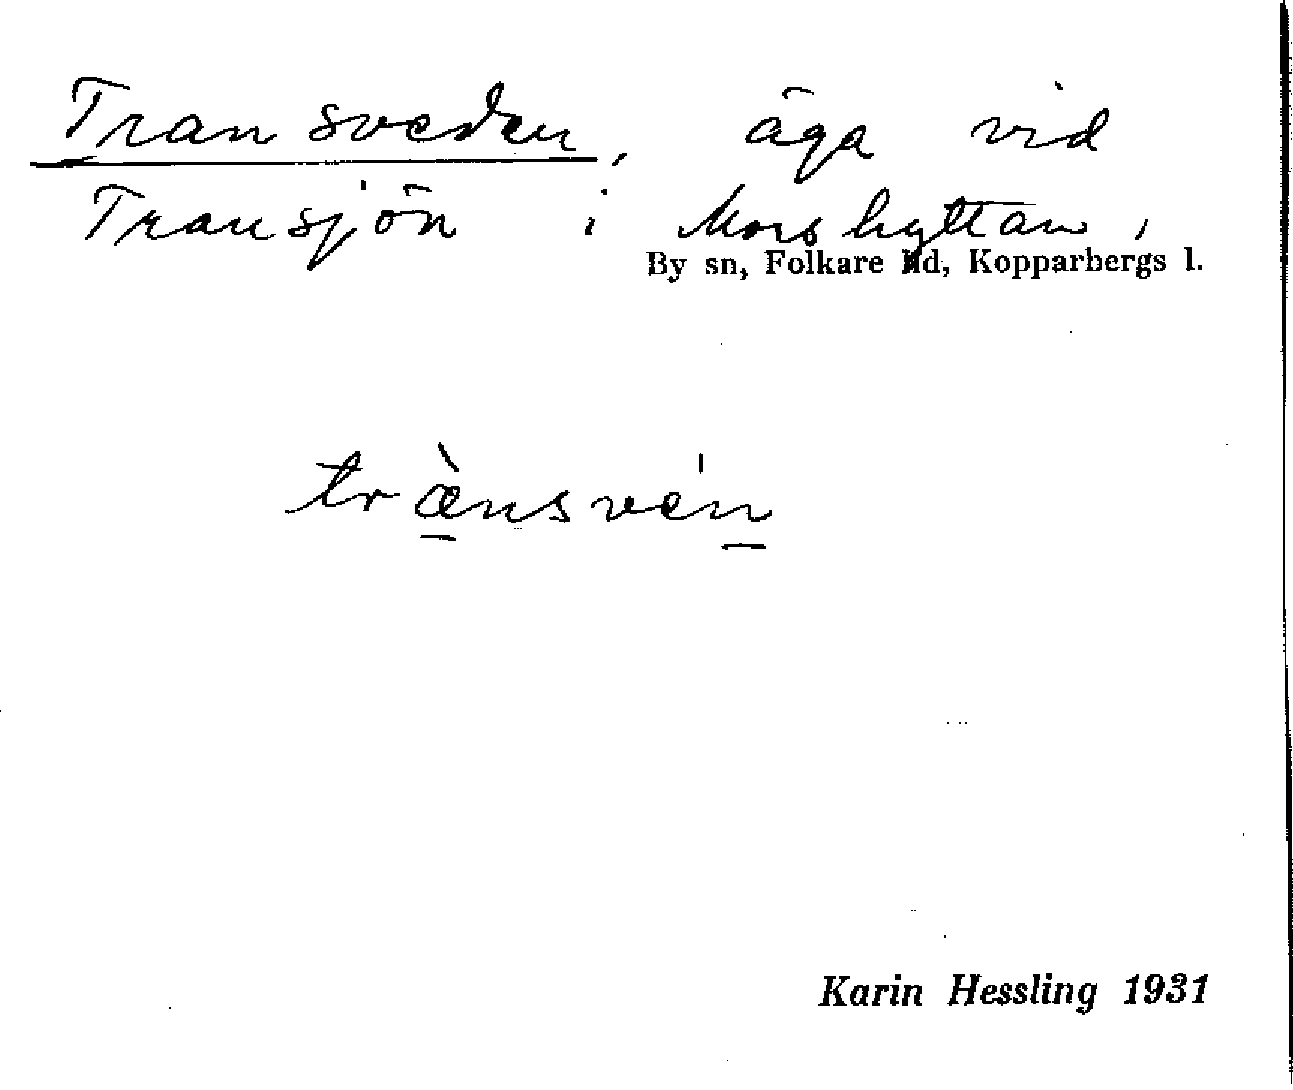 Transveden, äga vid
Transjön i Morshyttan,
By sn, Folkare Hd, Kopparbergs l.
træ̀nsve'n
Karin Hessling 1931